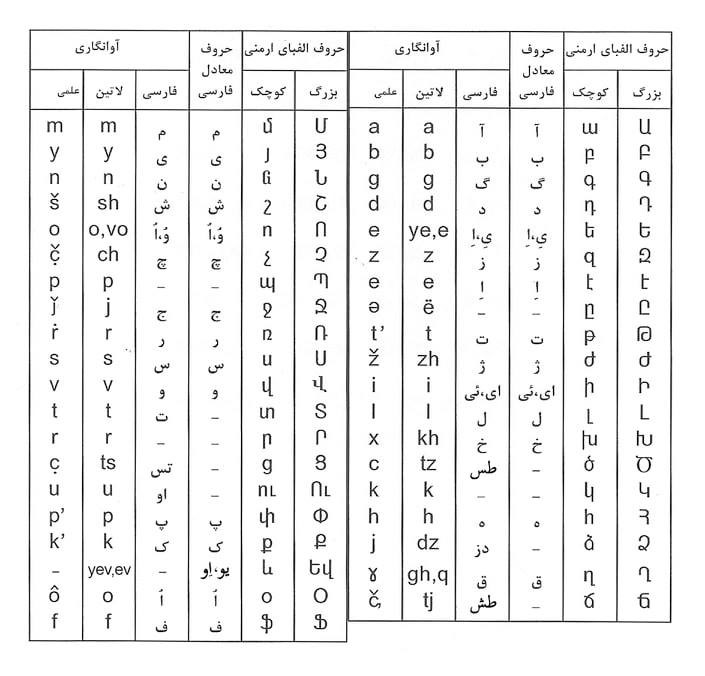 حروف الفبای ارمنی حروف معادل فارسی آوانگاری
بزرگ کوچک فارسی لاتین علمی
Ա ա آ آ a a
Բ բ ب ب b b
Գ գ گ گ g g
Դ դ د د d d
Ե ե یِ،اِ یِ،اِ ye,e e
Զ զ ز ز z z
Է է اِ اِ e e
Ը ը – – ë ə
Թ թ ت ت t t’
Ժ ժ ژ ژ zh ž
Ի ի ای،ئی ای،ئی i i
Լ լ ل ل l l
Խ խ خ خ kh x
Ծ ծ – طس tz c
Կ կ – – k k
Հ հ ه ه h h
Ձ ձ – دز dz j
Ղ ղ ق ق gh,q ɣ
Ճ ճ – طش tj č,
حروف الفبای ارمنی حروف معادل فارسی آوانگاری
بزرگ کوچک فارسی لاتین علمی
Մ մ م م m m
Յ յ ی ی y y
Ն ն ن ن n n
Շ շ ش ش sh š
Ո ո وُ،اُ وُ،اُ o,vo o
Չ չ چ چ ch č̣
Պ պ – – p p
Ջ ջ ج ج j ǰ
Ռ ռ ر ر r ṙ
Ս ս س س s s
Վ վ و و v v
Տ տ – ت t t
Ր ր – – r r
Ց ց – تس ts c̣
Ու ու – او u u
Փ փ پ پ p p’
Ք ք ک ک k k’
Եվ և یو،اِو – yev,ev –
Օ օ اُ اُ o ô
Ֆ ֆ ف ف f f